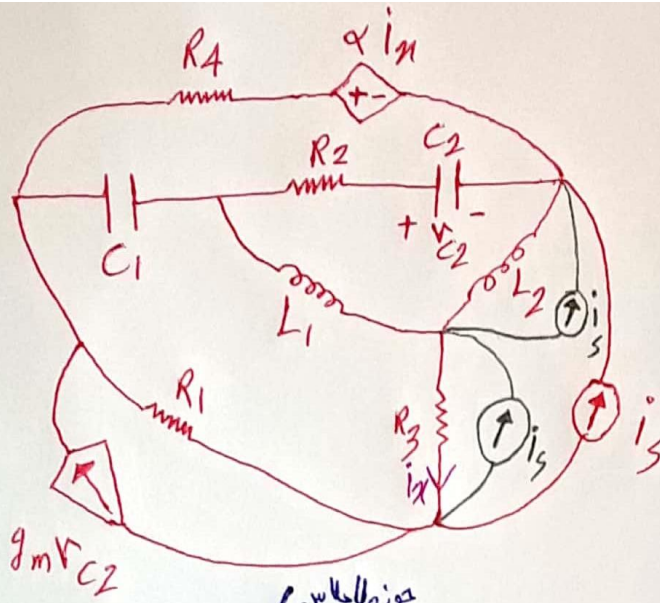 α iₓ
R4
+ -
R2
C2
+ v_C2 -
C1
L1
L2
i_s
R1
R3
i_s
i_s
iₓ
g_m v_C2